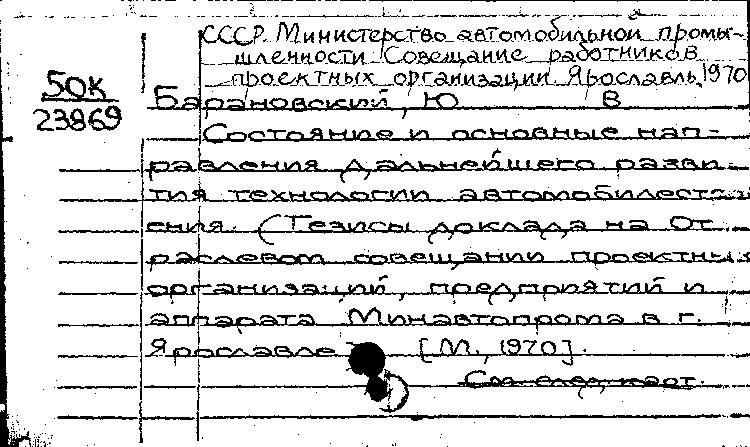 СССР. Министерство автомобильной промы-
шленности Совещание работников
проектных организации Ярославль, 1970
50К
23869
Барановский, Ю В
Состояние и основные нап-
равления дальнейшего разви-
тия технологии автомобилест
ения. (Тезисы доклада на От
раслевом совещании проектных
организаций, предприятий и
аппарата Минавтопрома в г.
Ярославле [М., 1970].
См след, карт.